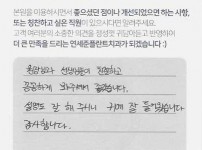 본원을 이용하시면서 좋으셨던 점이나 개선되었으면 하는 사항,
또는 칭찬하고 싶은 직원이 있으시다면 알려주세요.
고객 여러분의 소중한 의견을 정성껏 귀담아듣고 반영하며
더 큰 만족을 드리는 연세준플란트치과가 되겠습니다 :)
원장님과 선생님들이 친절하고
꼼꼼하게 봐주셔서 좋았습니다
설명도 잘 해 주시니 귀에 잘 들어왔습니다
감사합니다.